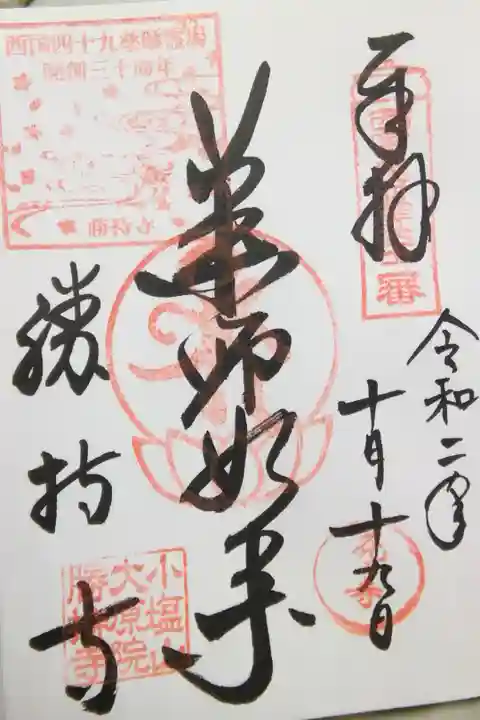 奉拝
令和二年
十月十九日
薬師如来
勝持寺
西国四十九薬師霊場
開創三十周年
勝持寺
小塩山
大原院
勝持寺